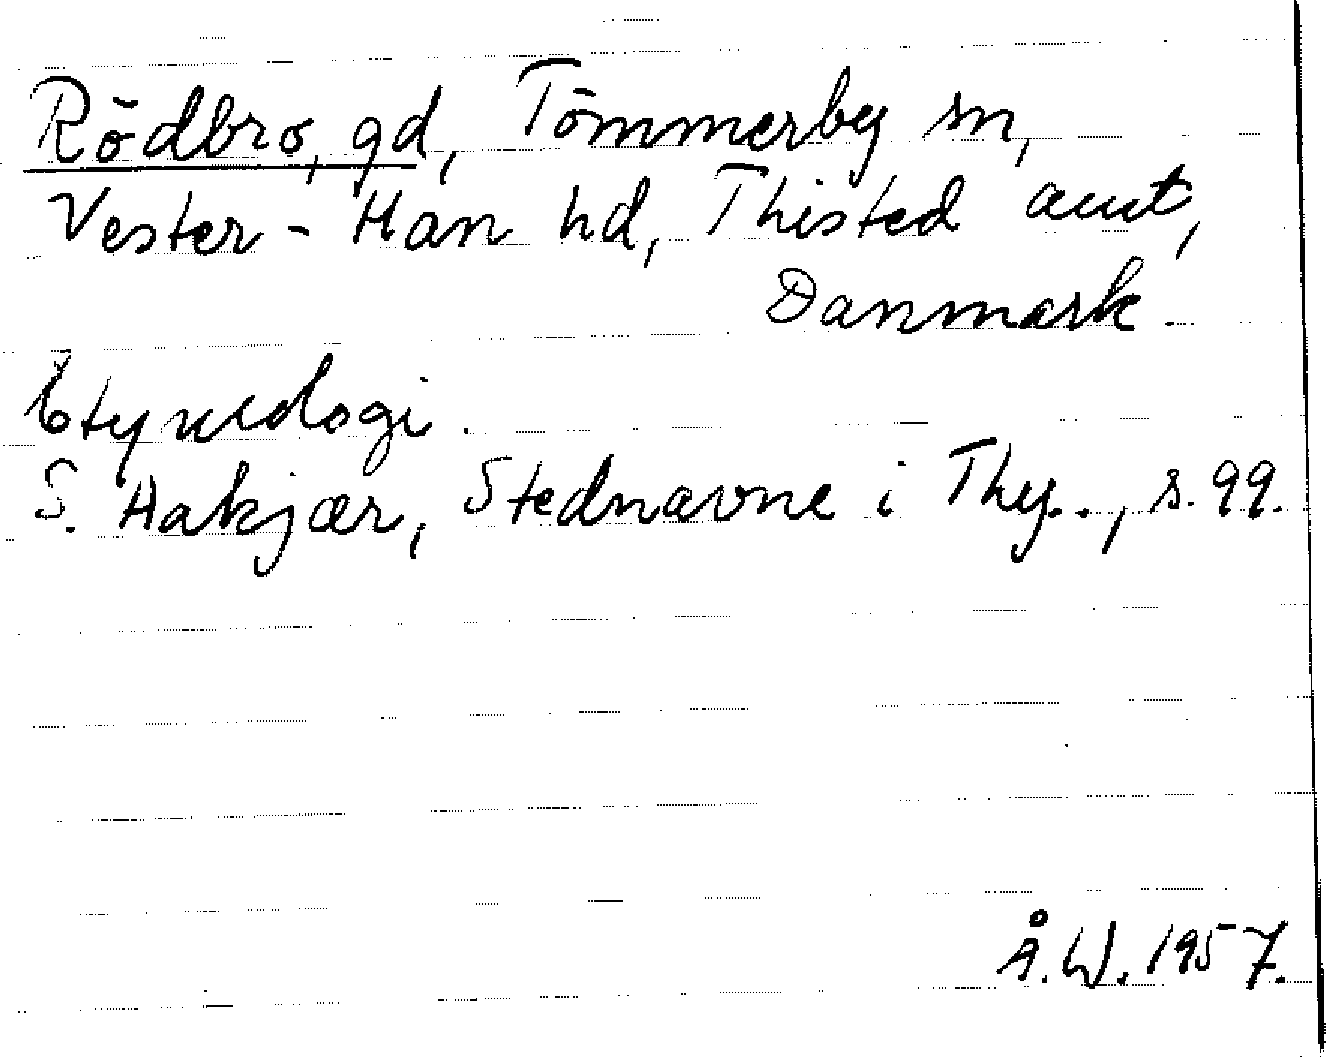 Rödbro, gd, Tömmerby sn,
Vester-Han hd, Thisted amt,
Danmark
Etymologi.
S. Hakjær, Stednavne i Thy.., s. 99.
Å.W. 1957.